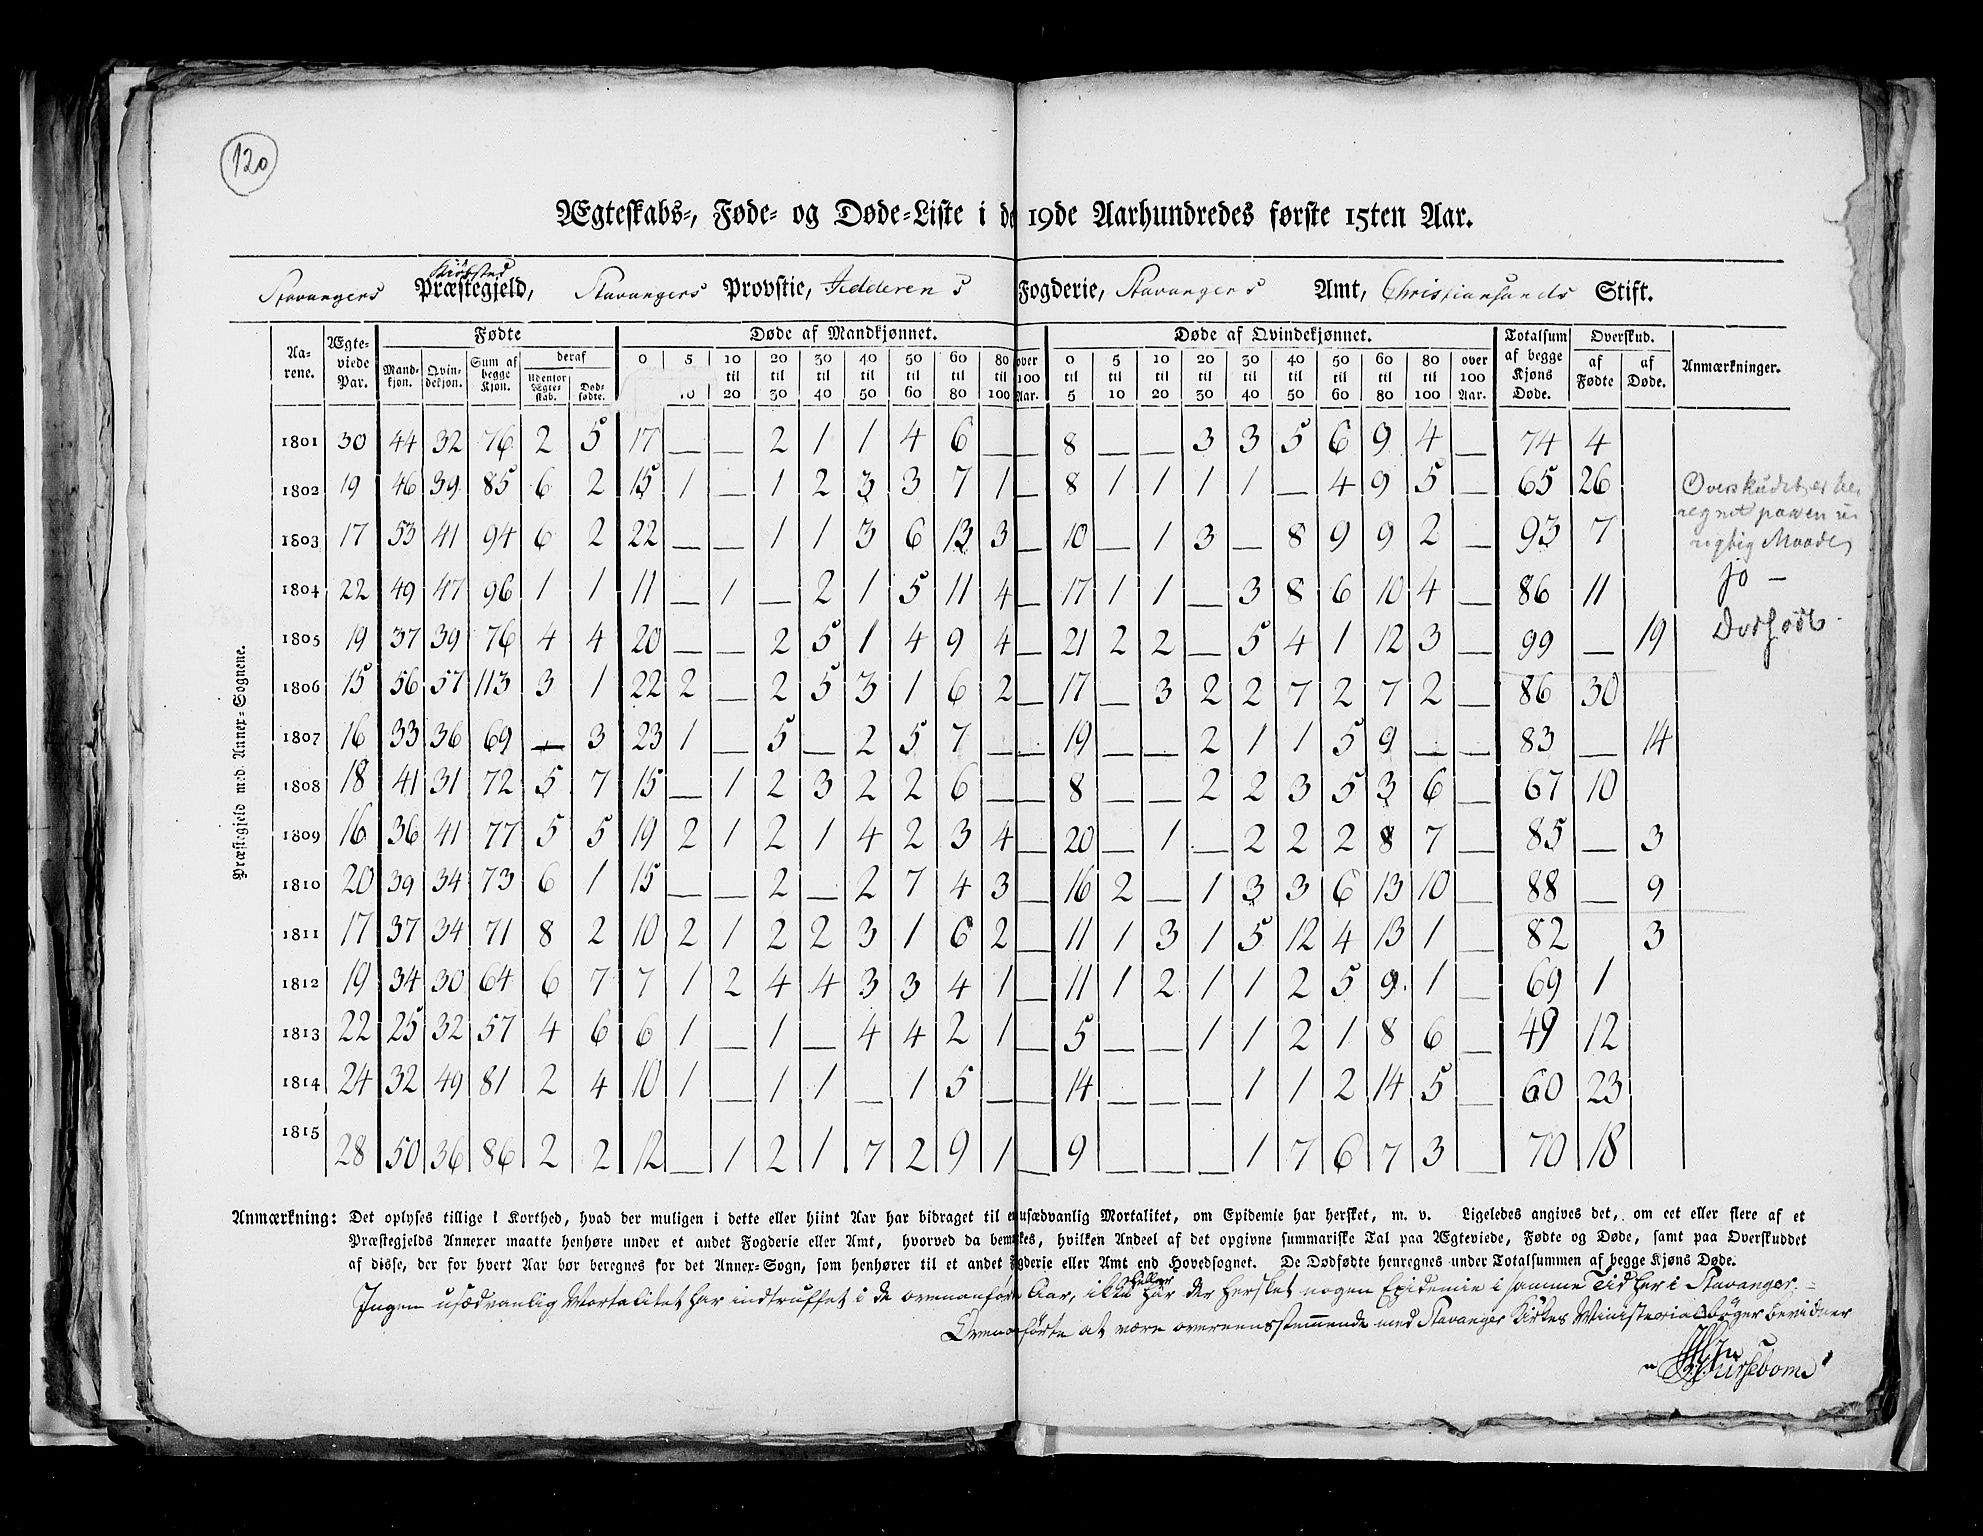 120
Ægteskabs-, Føde- og Døde-Liste i de 19de Aarhundredes første 15ten Aar.
Kiøbsted
Stavangers Præstegjeld, Stavangers Provstie, Jedderens Fogderie, Stavangers Amt, Christiansands Stift.
Præstegjeld med Annex-Sognene.
Aarene. Ægteviede Par. Fødte Døde af Mandkjønnet. Døde af Qvindekjønnet. Totalsum af begge Kjøns Døde. Overskud. Anmærkninger.
Mandkjøn. Qvindekjøn. Sum af begge Kjøn. deraf af Fødte af Døde.
Udenfor Ægteskab. Dødfødte.
0 5 10 20 30 40 50 60 80 over 0 5 10 20 30 40 50 60 80 over
til til til til til til til 100 til til til til til til til til til 100
10 20 30 40 50 60 80 100 Aar. 5 10 20 30 40 50 60 80 100 Aar.
1801 30 44 32 76 2 5 17 — — 2 1 1 4 6 — — 8 — — 3 3 5 6 9 4 — 74 4
1802 19 46 39 85 6 2 15 1 — 1 2 3 3 7 1 — 8 1 1 1 1 — 4 9 5 — 65 26
1803 17 53 41 94 6 2 22 — — 1 1 3 6 13 3 — 10 — 1 3 — 8 9 9 2 — 93 7
1804 22 49 47 96 1 1 11 — 1 — 2 1 5 11 4 — 17 1 1 — 3 8 6 10 4 — 86 11
1805 19 37 39 76 4 4 20 — — 2 5 1 4 9 4 — 21 2 2 — 5 4 1 12 3 — 99 — 19
1806 15 56 57 113 3 1 22 2 — 2 5 3 1 6 2 — 17 — 3 2 2 7 2 7 2 — 86 30
1807 16 33 36 69 — 3 23 1 — 5 — 2 5 7 — — 19 — — 2 1 1 5 9 — — 83 — 14
1808 18 41 31 72 5 7 15 — 1 2 3 2 2 6 — — 8 — — 2 2 3 5 3 6 — 67 10
1809 16 36 41 77 5 5 19 2 1 2 1 4 2 3 4 — 20 — 1 — 2 2 2 8 7 — 85 — 3
1810 20 39 34 73 6 1 15 — — 2 — 2 7 4 3 — 16 2 — 1 3 3 6 13 10 — 88 — 9
1811 17 37 34 71 8 2 10 2 1 2 2 3 1 6 2 — 11 1 3 1 5 12 4 13 1 — 82 3
1812 19 34 30 64 6 7 7 1 2 4 4 3 3 4 1 — 11 1 2 1 1 2 5 9 1 — 69 1
1813 22 25 32 57 4 6 6 1 — 1 — 4 4 2 1 — 5 — — 1 1 2 1 8 6 — 49 12
1814 24 32 49 81 2 4 10 1 — 1 1 — 1 5 — — 14 — — — 1 1 2 14 5 — 60 23
1815 28 50 36 86 2 2 12 — 1 2 1 7 2 9 1 — 9 — — — 1 7 6 7 3 — 70 18
Overskudet er be-
regnet paa en u-
rigtig Maade
jo —
Dødfødte
Anmærkning: Det oplyses tillige i Korthed, hvad der muligen i dette eller hiint Aar har bidraget til en usædvanlig Mortalitet, om Epidemie har hersket, m. v. Ligeledes angives det, om eet eller flere af et
Præstegjelds Annexer maatte henhøre under et andet Fogderie eller Amt, hvorved da bemærkes, hvilken Andeel af det opgivne summariske Tal paa Ægteviede, Fødte og Døde, samt paa Overskuddet
af disse, der for hvert Aar bør beregnes for det Annex-Sogn, som henhører til et andet Fogderie eller Amt end Hovedsognet. De Dødfødte henregnes under Totalsummen af begge Kjøns Døde.
Ingen usædvanlig Mortalitet har indtruffet i de ovenanførte Aar, ikke heller har der hersket nogen Epidemie i samme Tid her i Stavanger. —
Ovenanførte at være overeensstemmende med Stavanger Kirkes Ministerialbøger bevidner